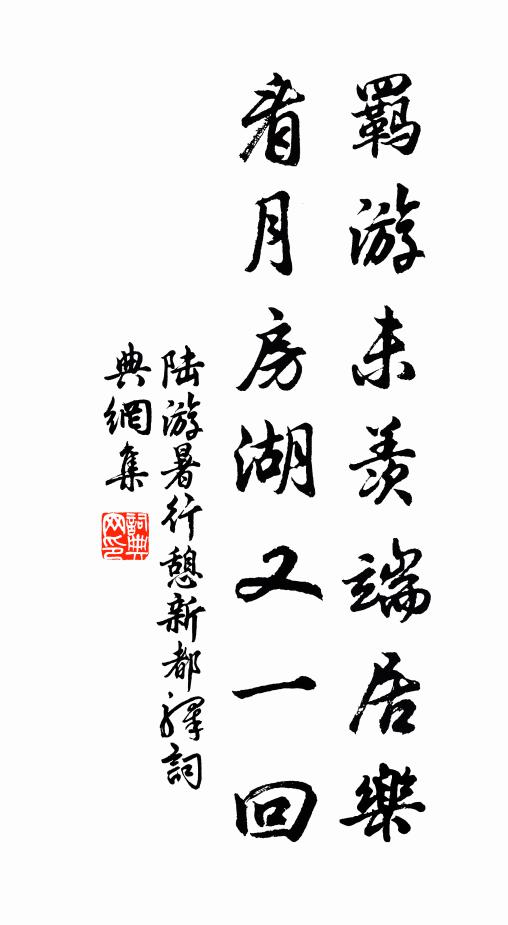 羈游未羨端居樂
看月房湖又一回
陸游暑行憩新都驛詞
典網集
詞典網印